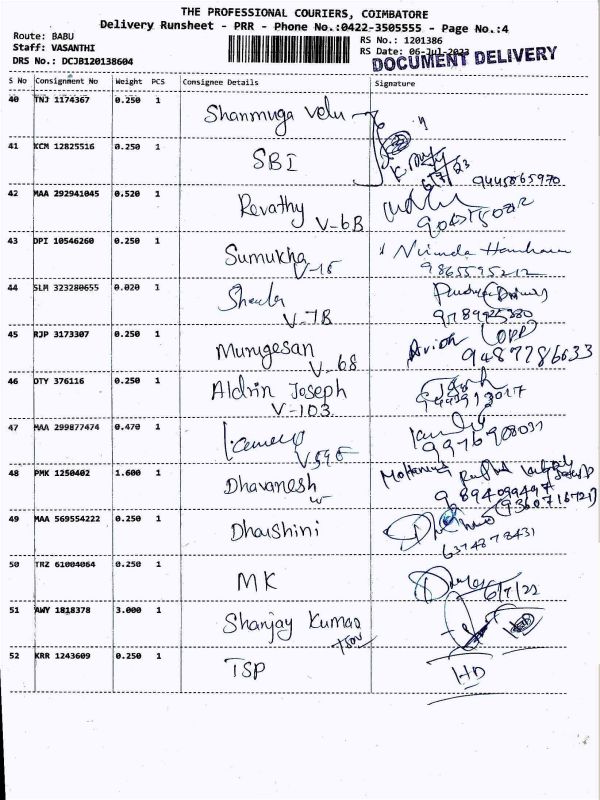 THE PROFESSIONAL COURIERS, COIMBATORE
Delivery Runsheet - PRR - Phone No.:0422-3505555 - Page No.:4
Route: BABU
Staff: VASANTHI
DRS No.: DCJB120138604
RS No.: 1201386
RS Date: 06-Jul-2023
DOCUMENT DELIVERY
S No Consignment No Weight PCS Consignee Details Signature
40 TNJ 1174367 0.250 1 Shanmuga Velu
41 KCM 12825516 0.250 1 SBI 6/7/23 9445865970
42 MAA 292941045 0.520 1 Revathy V-6B
43 DPI 10546260 0.250 1 Sumukha V-15 9865595212
44 SLM 323280655 0.020 1 V-7B
45 RJP 3173307 0.250 1 Murugesan V-68 9487786633
46 DTY 376116 0.250 1 Aldrin Joseph V-103
47 MAA 299877474 0.470 1 9976908031
48 PMK 1250402 1.600 1 Dhavanesh
49 MAA 569554222 0.250 1 Dharshini 6374878431
50 TRZ 61004064 0.250 1 MK
51 AWY 1818378 3.000 1 Shanjay Kumar
52 KRR 1243609 0.250 1 TSP HD